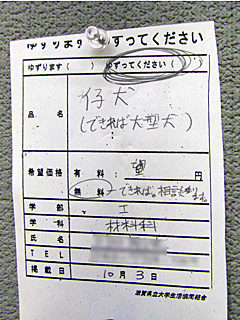 ゆずります・ゆずってください
ゆずります( ) ゆずってください( )
品名 仔犬
(できれば大型犬)
希望価格 有料: 円
無料: できれば。相談大型ます。
学部 工
学科 材料科
氏名
TEL
掲載日 10月3日
滋賀県立大学生活協同組合